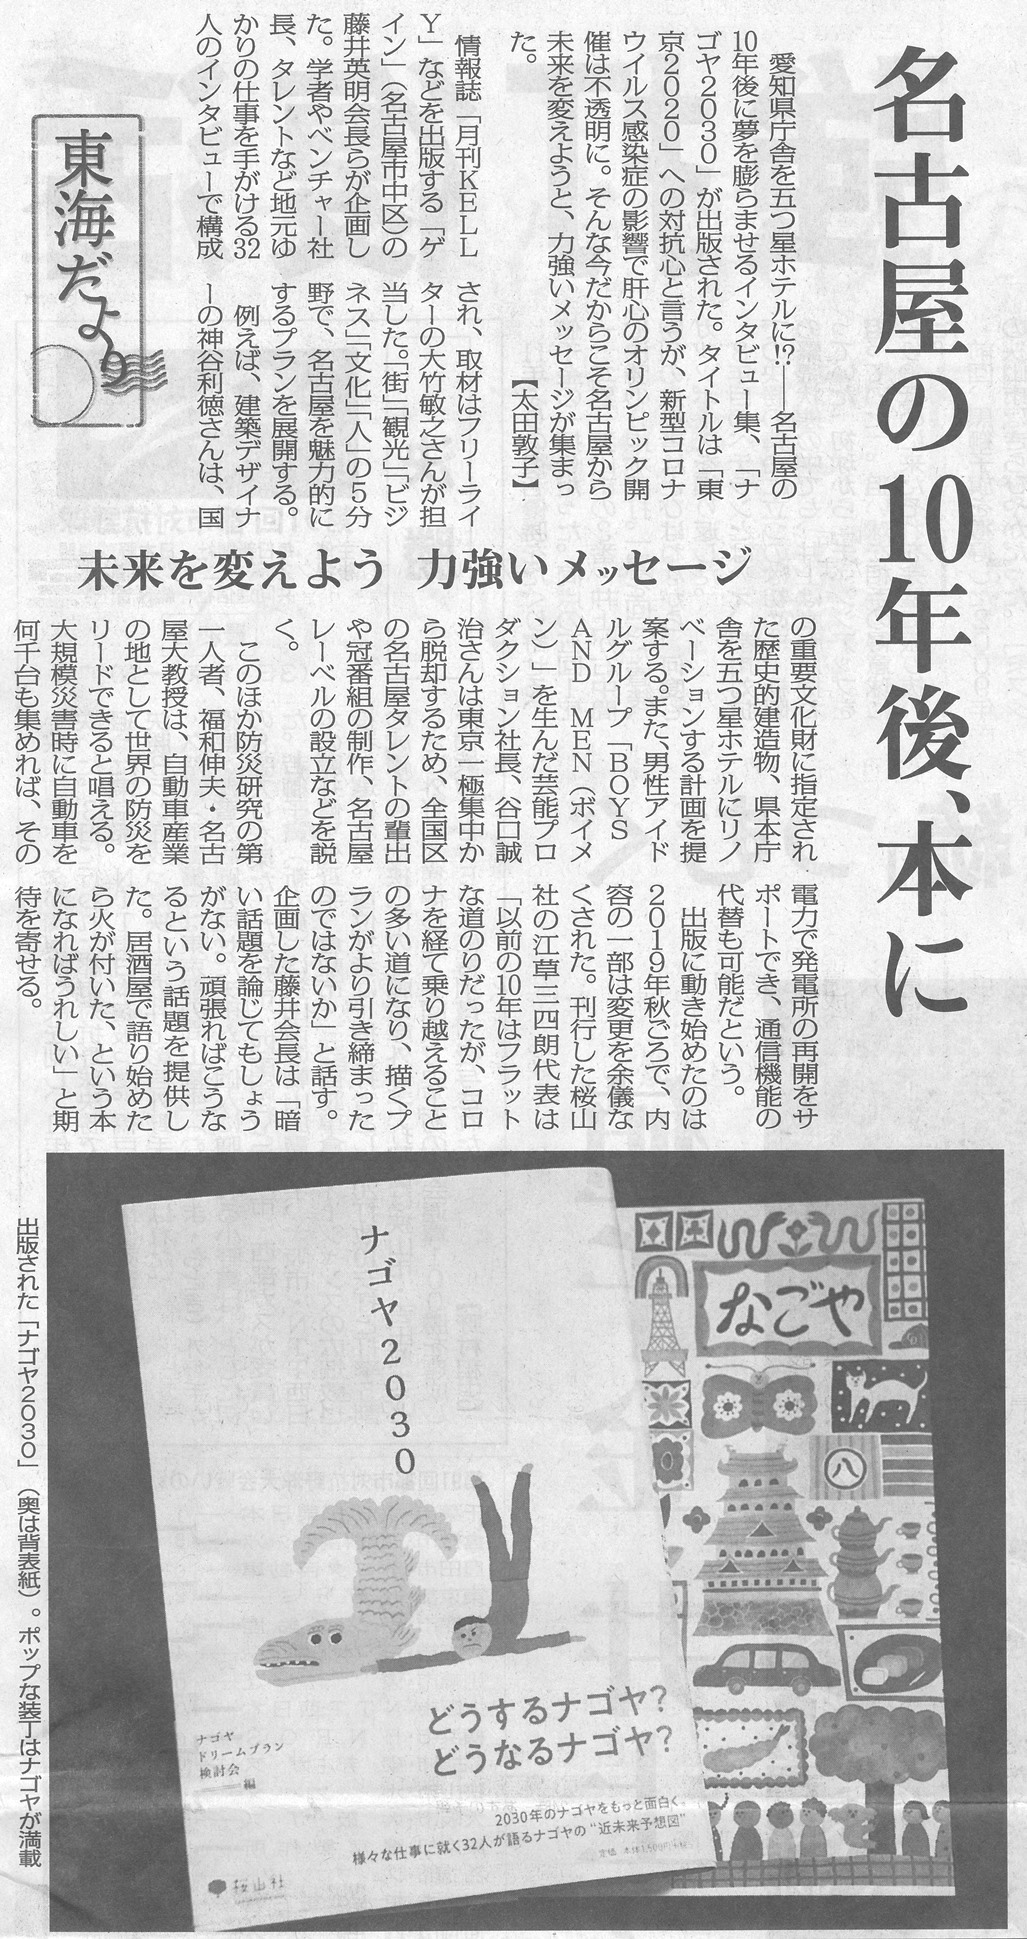 名古屋の10年後、本に
愛知県庁舎を五つ星ホテルに!?――名古屋の
10年後に夢を膨らませるインタビュー集、「ナ
ゴヤ2030」が出版された。タイトルは「東
京2020」への対抗心と言うが、新型コロナ
ウイルス感染症の影響で肝心のオリンピック開
催は不透明に。そんな今だからこそ名古屋から
未来を変えようと、力強いメッセージが集まっ
た。
【太田敦子】
情報誌「月刊KELL
Y」などを出版する「ゲ
イン」（名古屋市中区）の
藤井英明会長らが企画し
た。学者やベンチャー社
長、タレントなど地元ゆ
かりの仕事を手がける32
人のインタビューで構成
され、取材はフリーライ
ターの大竹敏之さんが担
当した。「街」「観光」「ビジ
ネス」「文化」「人」の5分
野で、名古屋を魅力的に
するプランを展開する。
例えば、建築デザイナ
ーの神谷利徳さんは、国
東海だより
未来を変えよう 力強いメッセージ
の重要文化財に指定され
た歴史的建造物、県本庁
舎を五つ星ホテルにリノ
ベーションする計画を提
案する。また、男性アイド
ルグループ「BOYS
AND MEN（ボイメ
ン）」を生んだ芸能プロ
ダクション社長、谷口誠
治さんは東京一極集中か
ら脱却するため、全国区
の名古屋タレントの輩出
や冠番組の制作、名古屋
レーベルの設立などを説
く。
このほか防災研究の第
一人者、福和伸夫・名古
屋大教授は、自動車産業
の地として世界の防災を
リードできると唱える。
大規模災害時に自動車を
何千台も集めれば、その
電力で発電所の再開をサ
ポートでき、通信機能の
代替も可能だという。
出版に動き始めたのは
2019年秋ごろで、内
容の一部は変更を余儀な
くされた。刊行した桜山
社の江草三四朗代表は
「以前の10年はフラット
な道のりだったが、コロ
ナを経て乗り越えること
の多い道になり、描くプ
ランがより引き締まった
のではないか」と話す。
企画した藤井会長は「暗
い話題を論じてもしょう
がない。頑張ればこうな
るという話題を提供し
た。居酒屋で語り始めた
ら火が付いた、という本
になればうれしい」と期
待を寄せる。
ナゴヤ2030
どうするナゴヤ?
どうなるナゴヤ?
ナゴヤ
ドリームプラン
検討会
編
2030年のナゴヤをもっと面白く。
様々な仕事に就く32人が語るナゴヤの"近未来予想図"
桜山社
なごや
八
出版された「ナゴヤ2030」（奥は背表紙）。ポップな装丁はナゴヤが満載